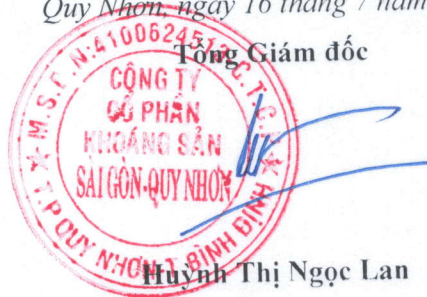 Quy Nhơn, ngày 16 tháng 7 năm
Tổng Giám đốc
M.S.D.N:4100624513-C.T.C.P
CÔNG TY
CỔ PHẦN
KHOÁNG SẢN
SÀI GÒN-QUY NHƠN
T.P QUY NHƠN-T.BÌNH ĐỊNH
Huỳnh Thị Ngọc Lan